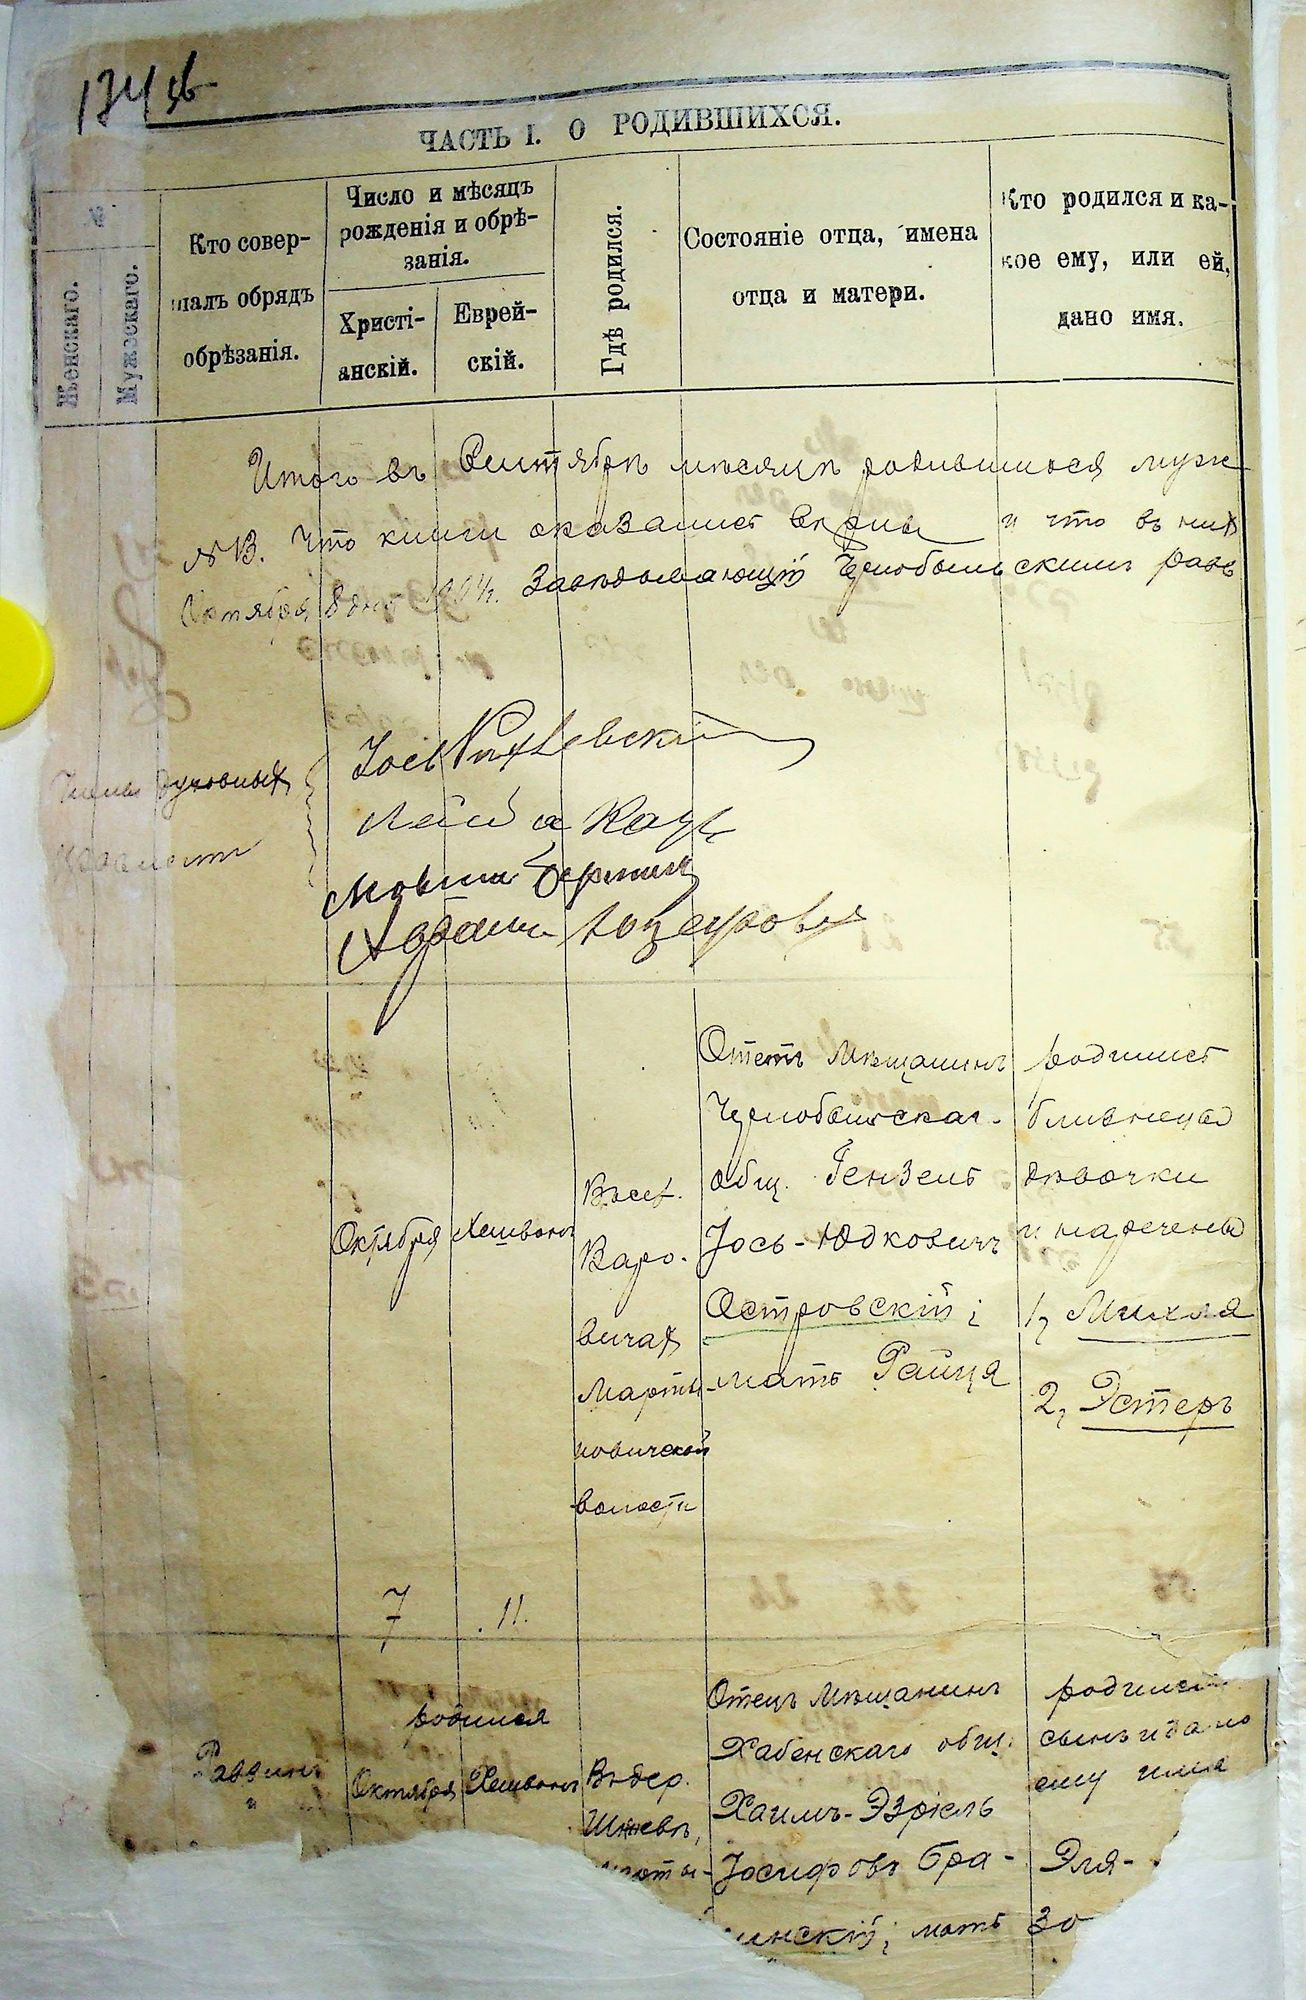 134 об
ЧАСТЬ I. О РОДИВШИХСЯ.
№
Женскаго.
Мужескаго.
Кто совер-
шалъ обрядъ
обрѣзанія.
Число и мѣсяцъ
рожденія и обрѣ-
занія.
Христі-
анскій.
Еврей-
скій.
Гдѣ родился.
Состояніе отца, имена
отца и матери.
Кто родился и ка-
кое ему, или ей,
дано имя.
Итого въ Сентябрѣ мѣсяцѣ родившихся муж
NB. Что книги оказались вѣрны и что въ нихъ
Октября 8 дня 1904 г. Завѣдывающій Чернобыльскимъ Равв
Члены духовныхъ
Лейба Кацъ
Мовша Берлинъ
Октября
7
Хешвонъ
11.
Въ сел.
Варо-
вичахъ
Марты-
новичской
волости
Отецъ Мѣщанинъ
Чернобыльскаг.
общ. Гензель
Іось-Юдковичъ
Островскій;
мать Райця
родились
близнецы
дѣвочки
и наречены
1, Михля
2, Эстеръ
Раввинъ
родился
Октября
Хешвонъ
Въ дер.
Отецъ Мѣщанинъ
Хабенскаго общ.
Хаимъ-Эзріель
Іосифовъ Бра-
инскій; мать
родился
сынъ и дано
ему имя
Эля-
Зо